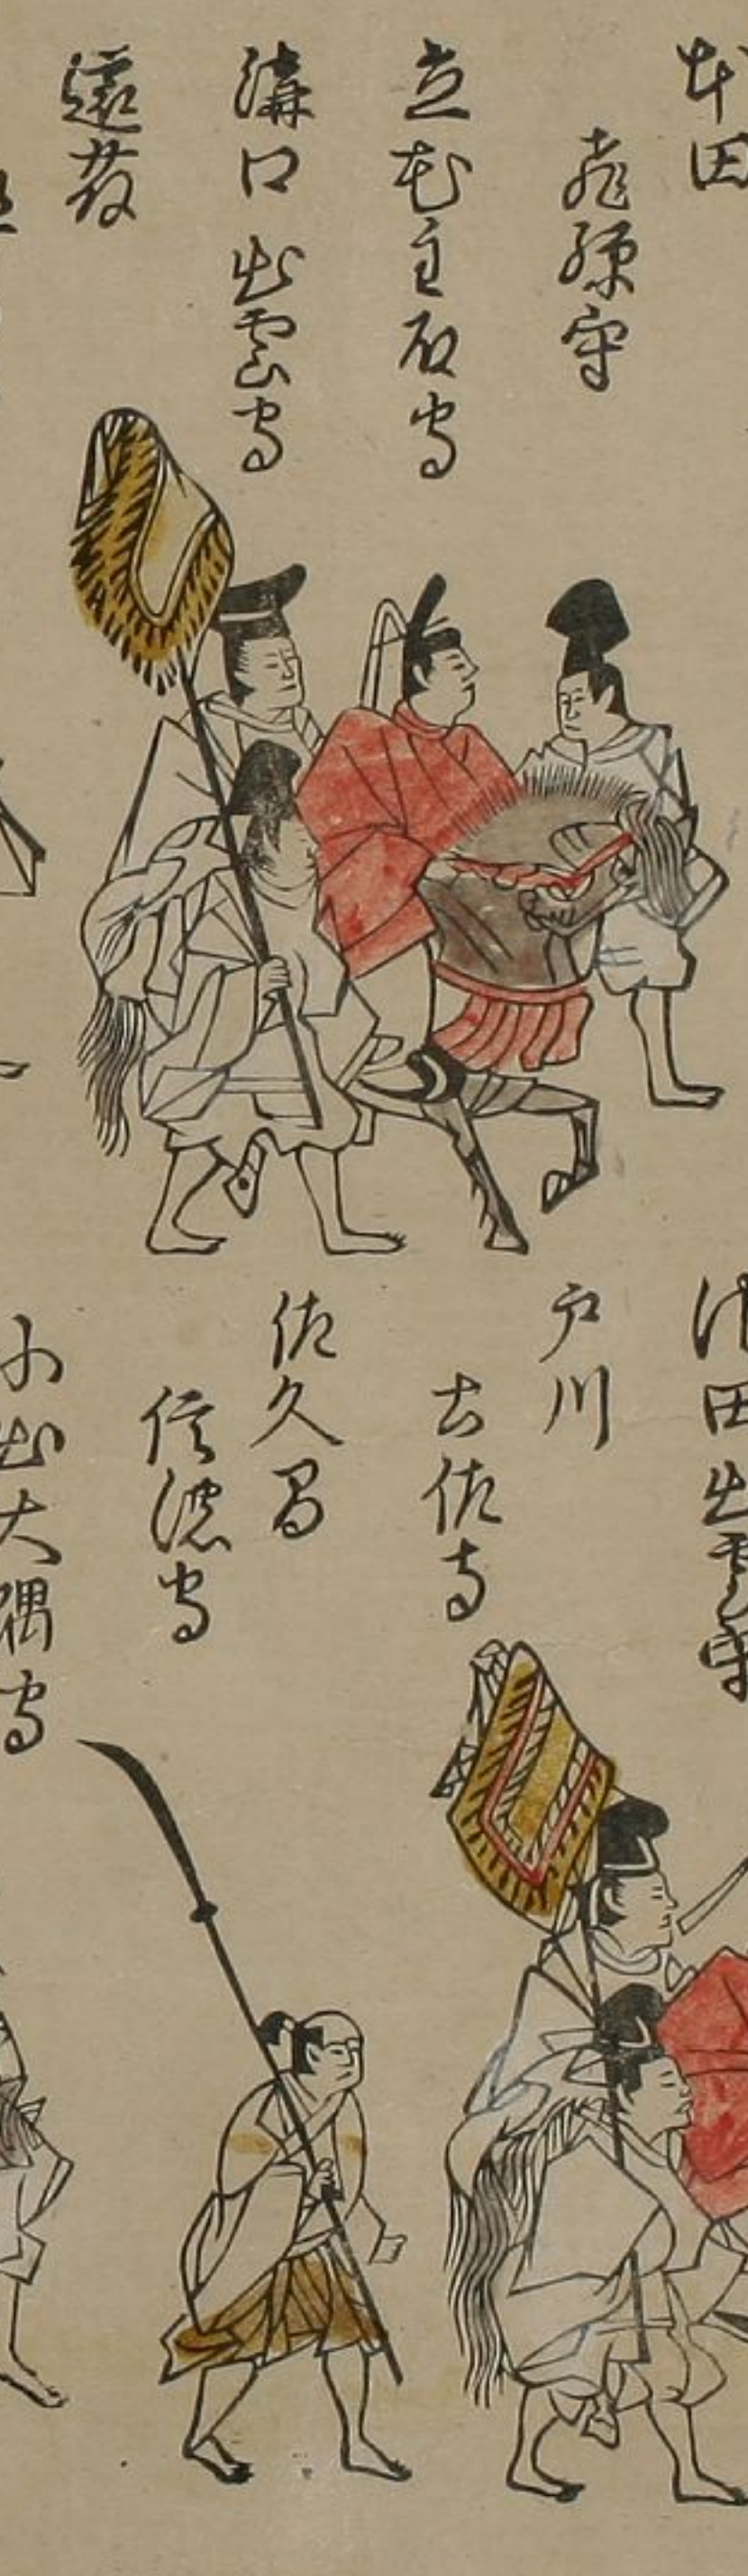 本田
飛騨守
立花主守
溝口出雲守
遠藤
田出雲守
戸川
土佐守
佐久間
信濃守
小出大隅守